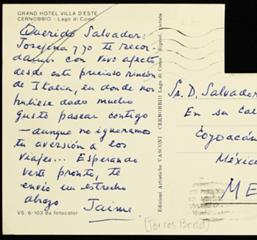 GRAND HOTEL VILLA D'ESTE
CERNOBBIO - Lago di Como
Querido Salvador:
Josefina y yo te recor-
damos con vivo afecto,
desde este precioso rincón
de Italia, en donde nos
hubiese dado mucho
gusto pasar contigo
—aunque no ignoramos
tu aversión a los
viajes... Esperando
verte pronto, te
envío un estrecho
abrazo Jaime
VS. 6-103 da fotocolor
Edizioni Artistiche TASCONI - CERNOBBIO (Lago di Como)
Sr. D. Salvador
En su
Coyoacán
México
ME
(Torres Bodet)